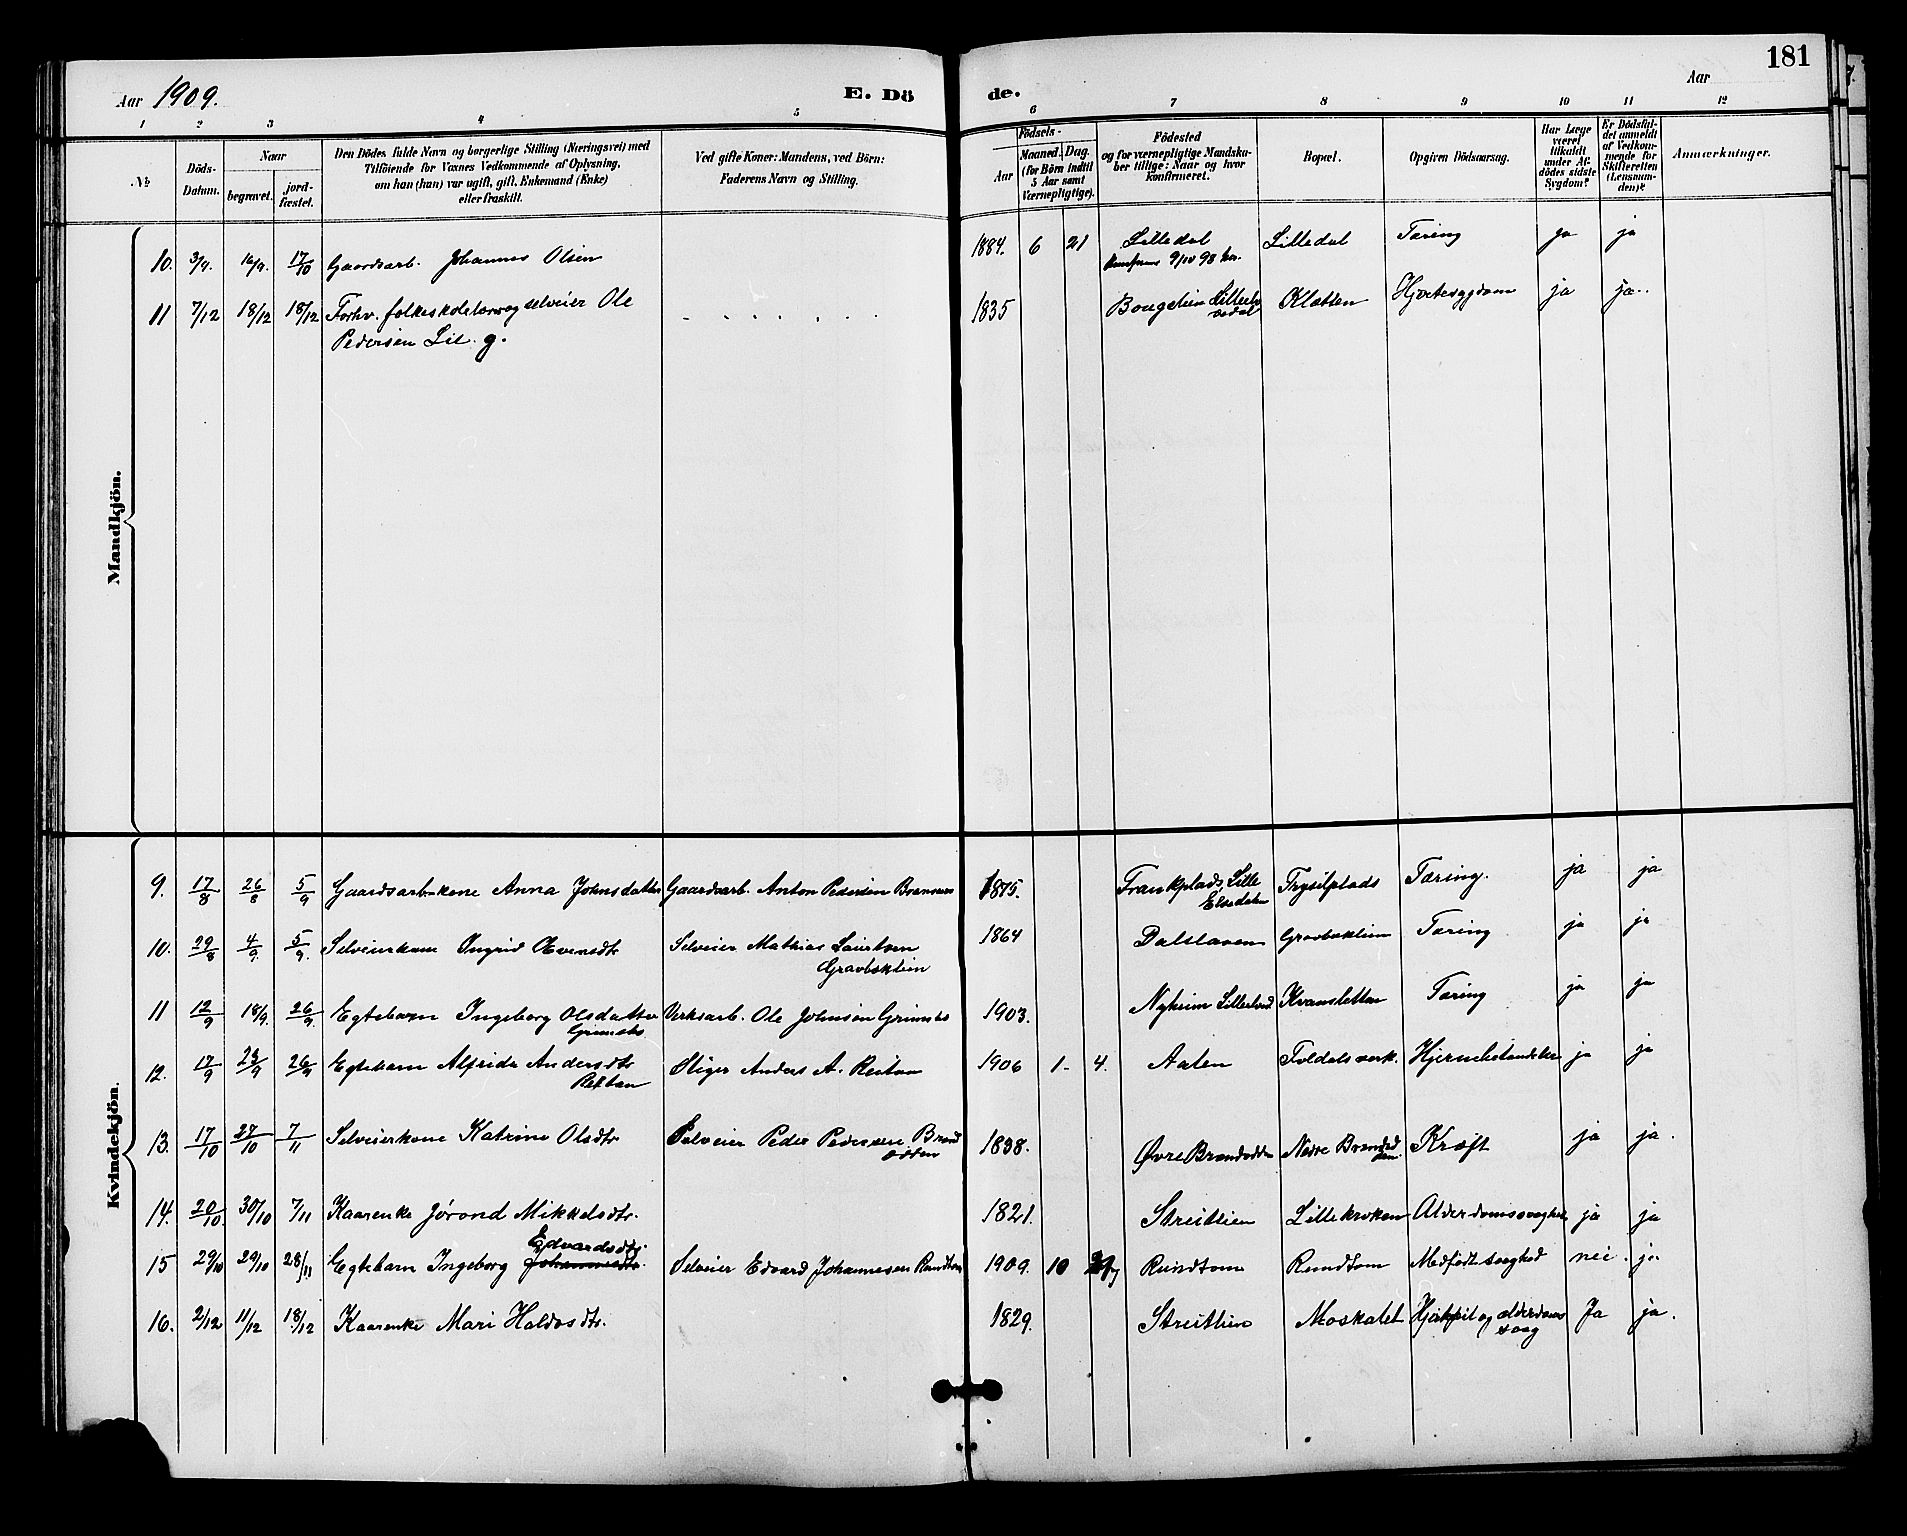 181
Aar 1909.
E. Dö de.
Aar
1 2 3 4 5 6 7 8 9 10 11 12
№
Döds-Datum.
Naar
begravet.
jord-fæstet.
Den Dödes fulde Navn og borgerlige Stilling (Næringsvei) med
Tilföiende for Voxnes Vedkommende af Oplysning,
om han (hun) var ugift, gift, Enkemand (Enke)
eller fraskilt.
Ved gifte Koner: Mandens, ved Börn:
Faderens Navn og Stilling.
Födsels-
Aar
Maaned. Dag.
(for Börn indtil
5 Aar samt
Værnepligtige).
Födested
og for værnepligtige Mandska-
ber tillige: Naar og hvor
konfirmeret.
Bopæl.
Opgiven Dödsaarsag.
Har Læge
været
tilkaldt
under Af-
dödes sidste
Sygdom?
Er Dödsfal-
det anmeldt
af Vedkom-
mende for
Skifteretten
(Lensman-
den)?
Anmærkninger.
Mandkjön.
10. 3/9. 16/9. 17/10 Gaardsarb. Johannes Olsen 1884. 6 21 Lilledal Lilledal Tæring ja ja
9/10 98
11 7/12 18/12 18/12 Forhv. folkeskolelærer og selveier Ole 1835 Klætten Hjertesygdom ja ja.
Pedersen Lie. g.
Kvindekjön.
9. 17/8 26/8 5/9 Gaardsarb.kone Anna Johnsdatter Gaardsarb. Anton Pedersen 1875. Trysilplads Tæring. ja ja
10. 29/8 4/9. 5/9. Selveierkone Ingrid Evensdtr Selveier Mathias 1864 Dalslaaen Gravbæklien Tæring ja ja
Gravbæklien
11 12/9 18/9. 26/9. Egtebarn Ingeborg Olsdatter Verksarb. Ole Johnsen Grimsbo 1903. Nyheim Kvernsletten Tæring ja ja
Grimsbo
12. 17/9 23/9 26/9 Egtebarn Alfrida Andersdtr Stiger Anders A. Reitan 1906 1 4. Aalen Foldals verk. Hjernebetændelse ja ja
Reitan
13. 17/10 27/10 7/11 Selveierkone Katrine Olsdtr Selveier Peder Pedersen Brand 1838. Øvre Brandodden Nedre Brandod Kræft ja ja.
odden den
14. 20/10. 30/10 7/11 Kaarenke Jørond Mikkelsdtr. 1821. Streitlien Lillekroken Alderdomssvaghet ja ja
Edvardsdtr.
15 29/10 29/10 28/11 Egtebarn Ingeborg Johannesdtr. Selveier Edvard Johannesen Rundtom 1909. 10 29 Rundtom Rundtom Medfødt svaghed nei. ja.
16. 2/12 11/12 18/12 Kaarenke Mari Haldosdtr. 1829. Streitlien Moskalet og alderdoms Ja ja.
svag